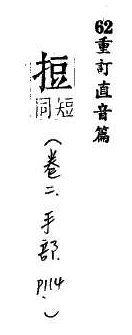 62重訂直音篇
𢭃
短同
(卷二.手部.P114.)